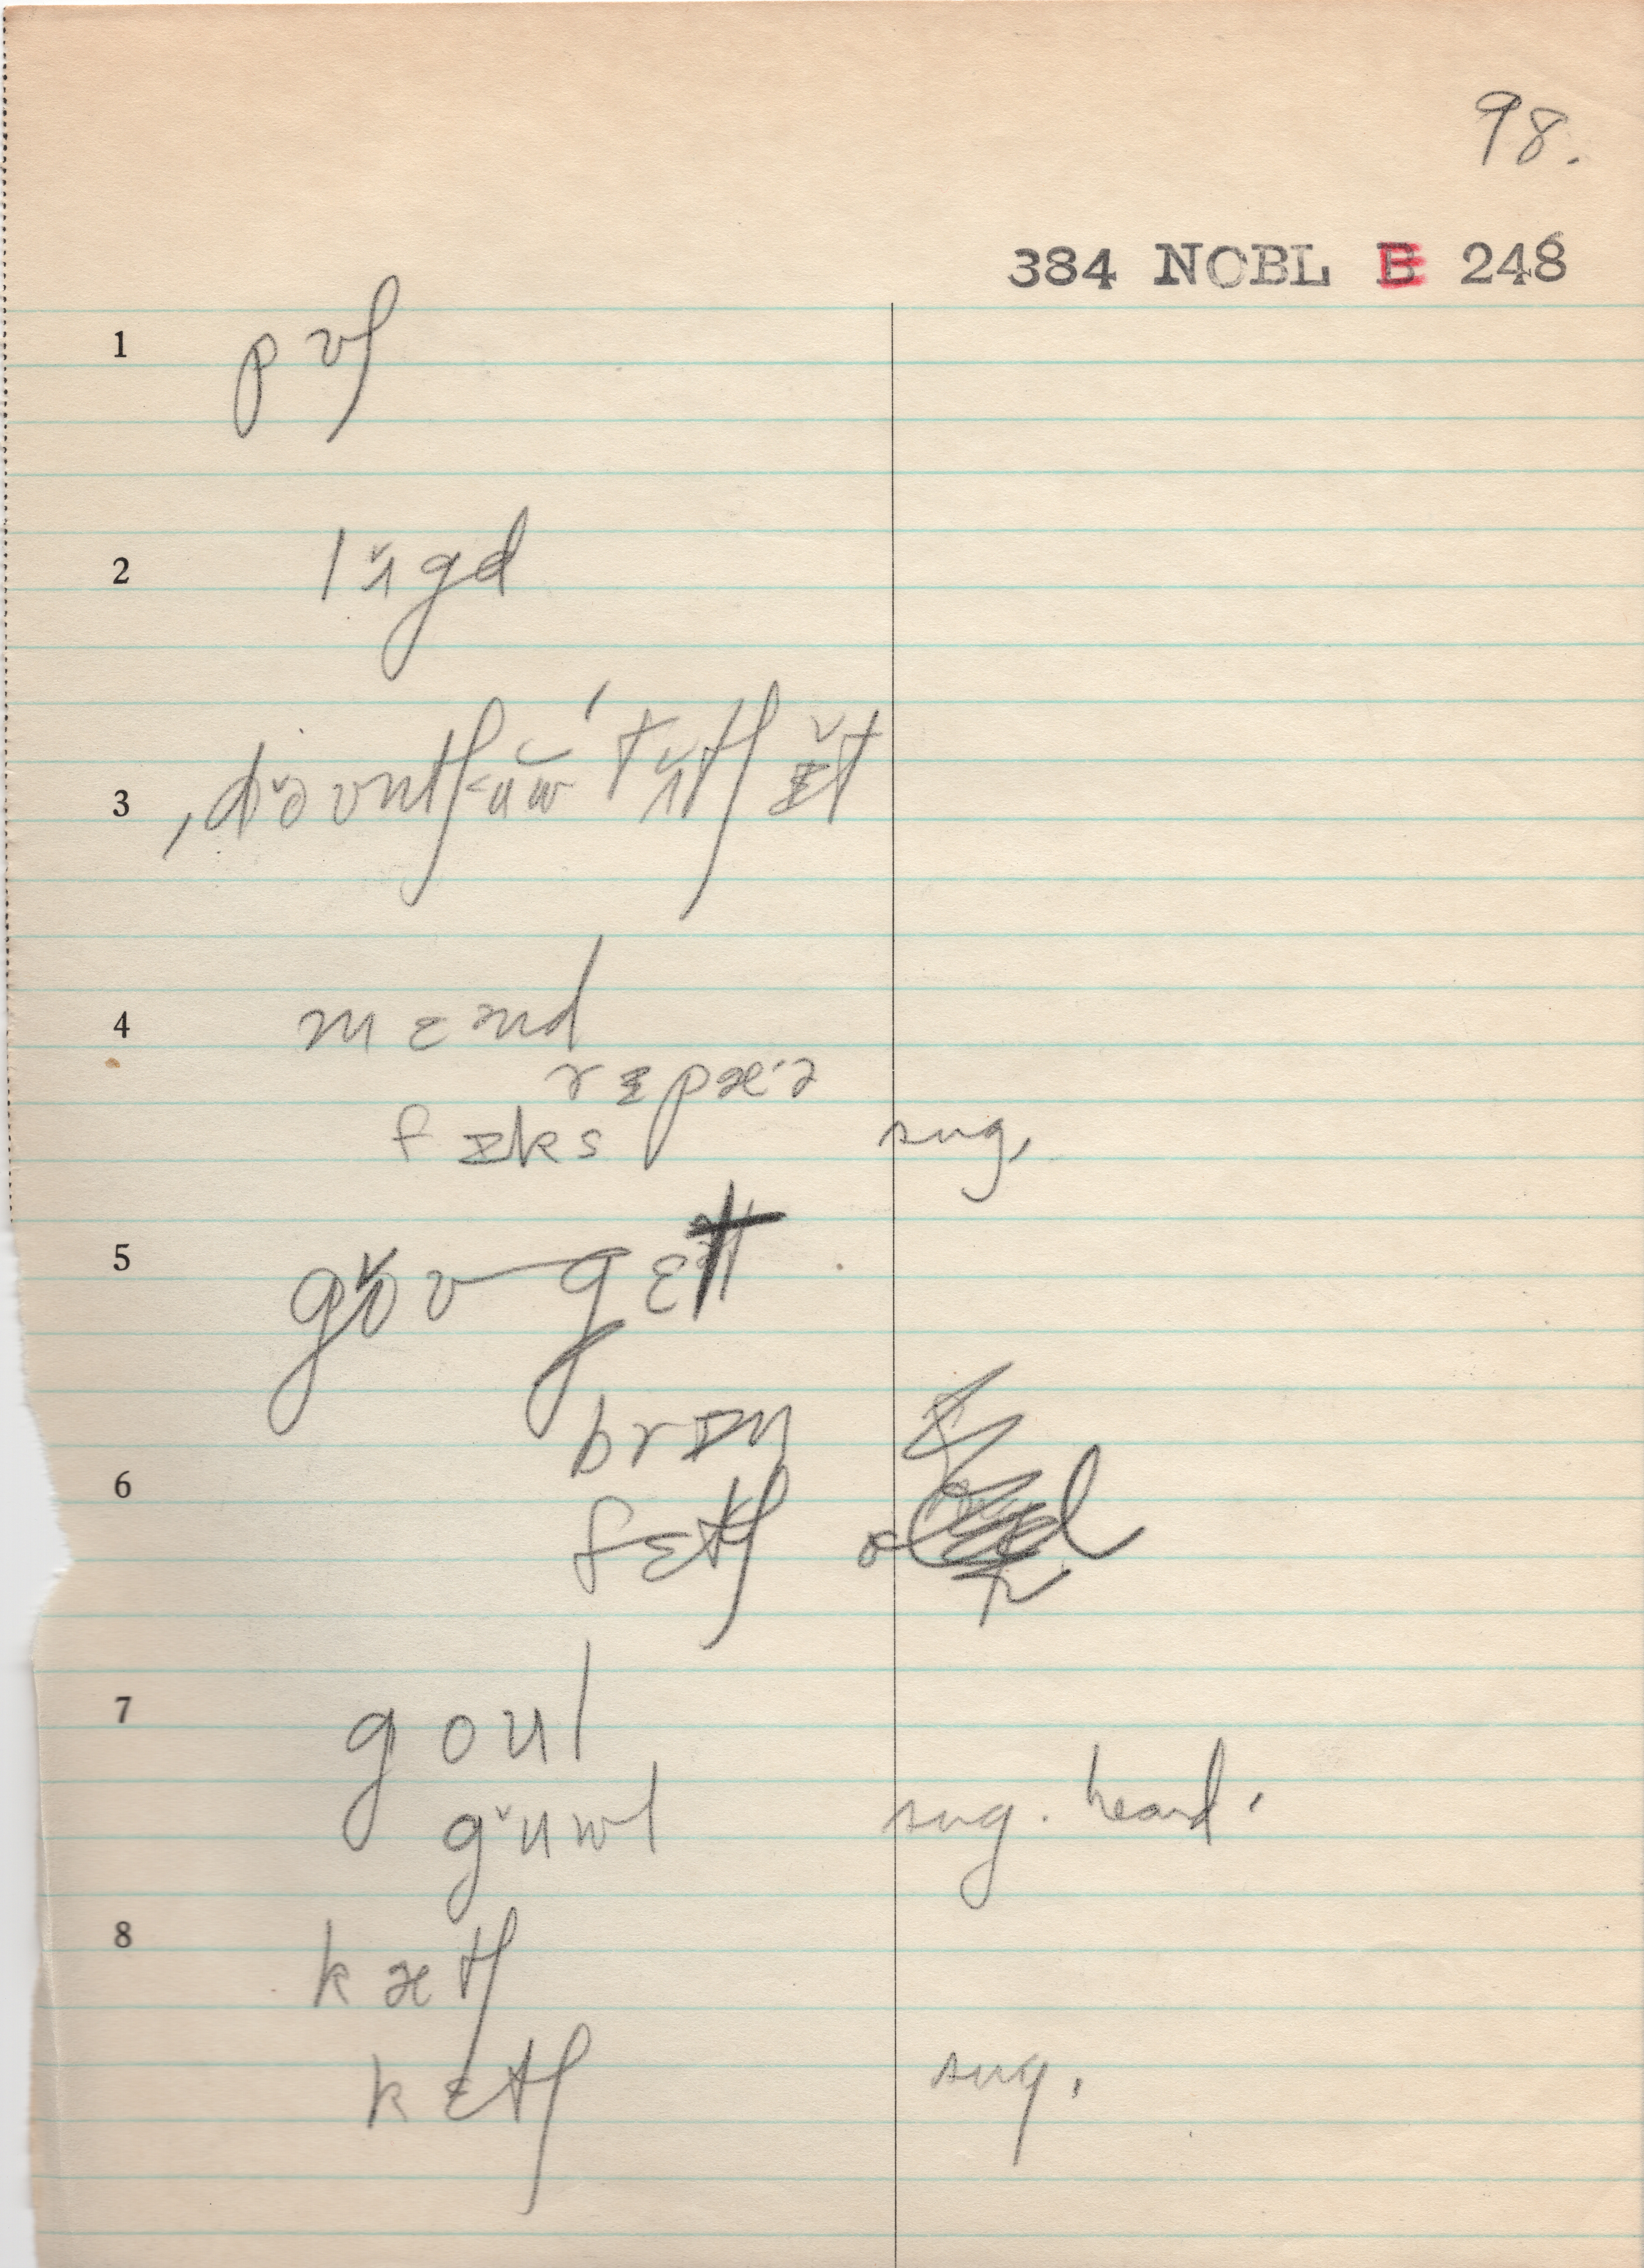 98.
384 NOBL B 248
1 pʊʃ
2 lʌ̆gd
3 ˌdə̆ʊntʃ<ŭw ˈtʌ̆tʃ ɪ̆t
4 mɛnd
rɪpæ·ə
fɪks sug.
5 gə̆ʊ gɛt
brɪŋ
6 fɛtʃ
7 goul
gŭwl sug. heard.
8 kætʃ
kɛtʃ sug.